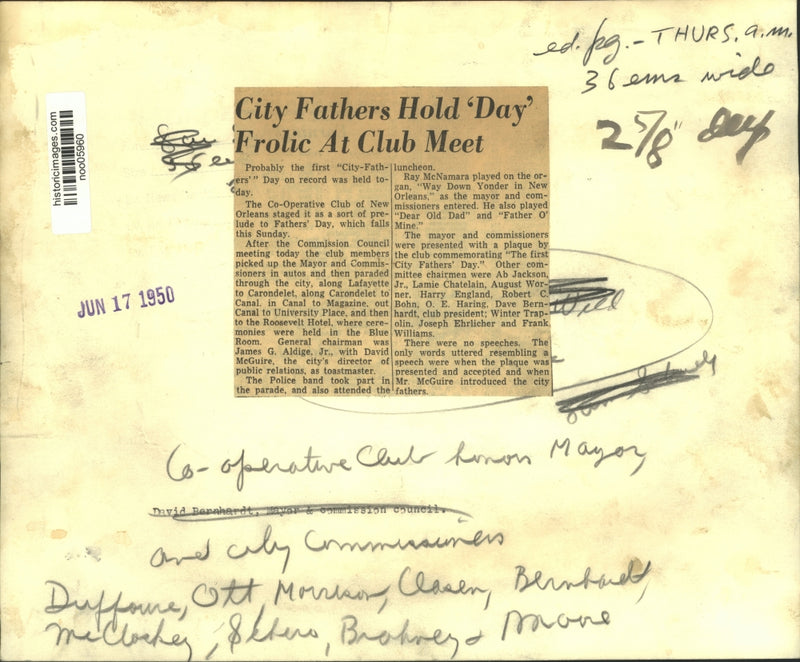 ed. pg. - THURS. a.m.
36 ems wide
2 5/8" deep
historicimages.com
noo05960
JUN 17 1950
City Fathers Hold 'Day'
Frolic At Club Meet
Probably the first "City-Fath-
ers'" Day on record was held to-
day.
The Co-Operative Club of New
Orleans staged it as a sort of pre-
lude to Fathers' Day, which falls
this Sunday.
After the Commission Council
meeting today the club members
picked up the Mayor and Commis-
sioners in autos and then paraded
through the city, along Lafayette
to Carondelet, along Carondelet to
Canal, in Canal to Magazine, out
Canal to University Place, and then
to the Roosevelt Hotel, where cere-
monies were held in the Blue
Room. General chairman was
James G. Aldige, Jr., with David
McGuire, the city's director of
public relations, as toastmaster.
The Police band took part in
the parade, and also attended the
luncheon.
Ray McNamara played on the or-
gan, "Way Down Yonder in New
Orleans," as the mayor and com-
missioners entered. He also played
"Dear Old Dad" and "Father O'
Mine."
The mayor and commissioners
were presented with a plaque by
the club commemorating "The first
City Fathers' Day." Other com-
mittee chairmen were Ab Jackson,
Jr., Lamie Chatelain, August Wor-
ner, Harry England, Robert C.
Bohn, O. E. Haring, Dave Bern-
hardt, club president; Winter Trap-
olin, Joseph Ehrlicher and Frank
Williams.
There were no speeches. The
only words uttered resembling a
speech were when the plaque was
presented and accepted and when
Mr. McGuire introduced the city
fathers.
Co-operative Club honors Mayor,
David Bernhardt, Mayor & commission council.
and city Commissioners
Duffourc, Ott, Morrison, Clasen, Bernhardt,
McCloskey, Schiro, Brahney & Moore